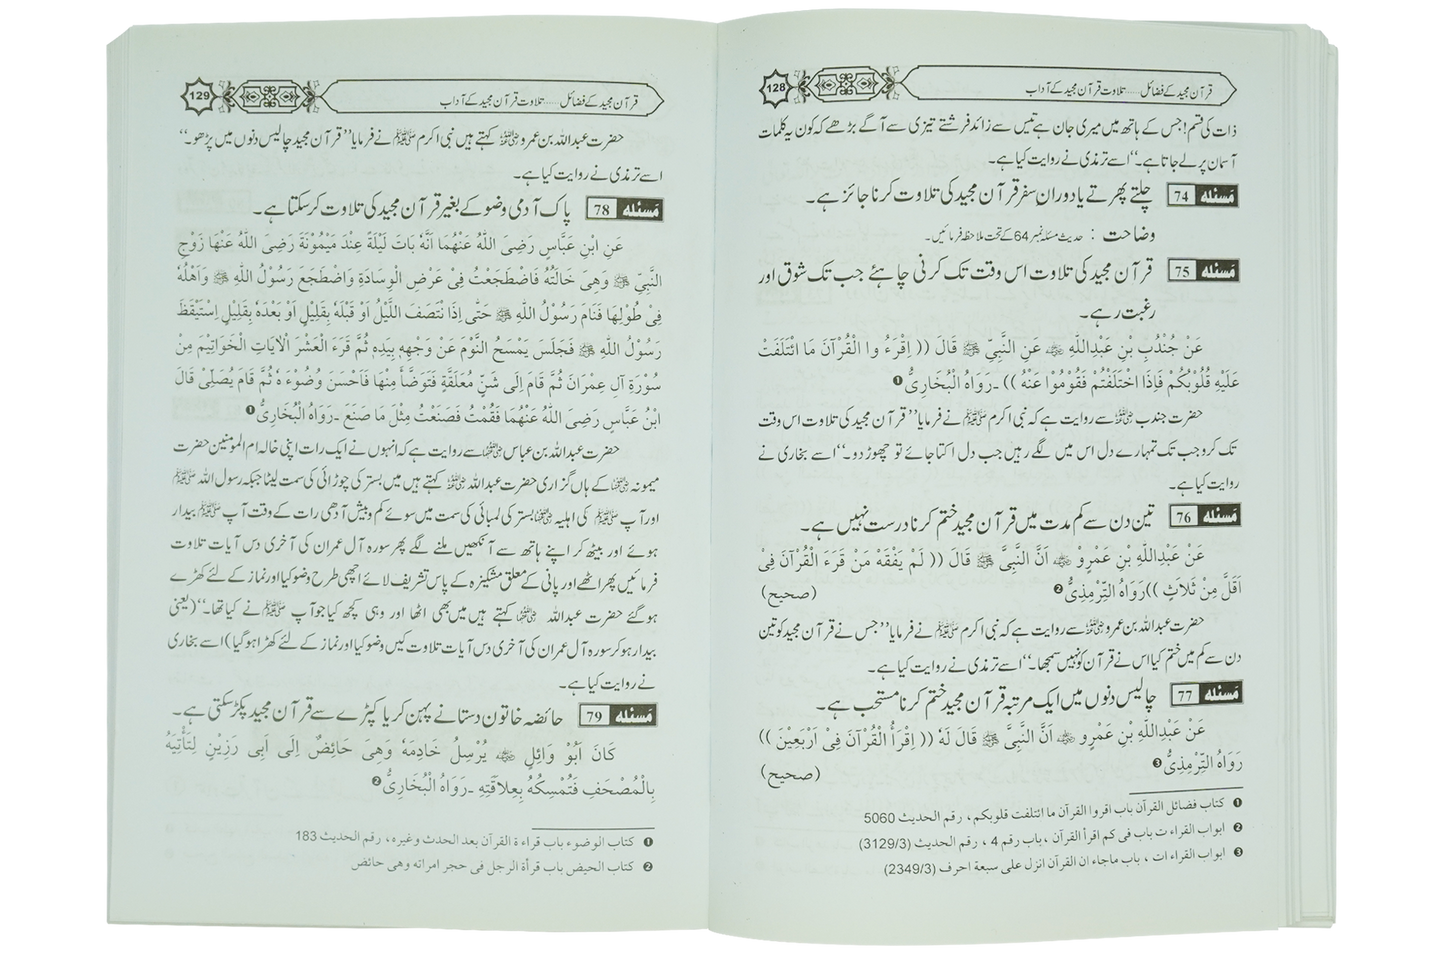 128
قرآن مجید کے فضائل..... تلاوت قرآن مجید کے آداب
ذات کی قسم! جس کے ہاتھ میں میری جان ہے تیس سے زائد فرشتے تیزی سے آگے بڑھے کہ کون یہ کلمات
آسمان پر لے جاتا ہے۔‘‘ اسے ترمذی نے روایت کیا ہے۔
مَسئله 74 چلتے پھرتے یا دوران سفر قرآن مجید کی تلاوت کرنا جائز ہے۔
وضاحت : حدیث مسئلہ نمبر 64 کے تحت ملاحظہ فرمائیں۔
مَسئله 75 قرآن مجید کی تلاوت اس وقت تک کرنی چاہئے جب تک شوق اور
رغبت رہے۔
عَنْ جُنْدُبِ بْنِ عَبْدِاللّٰهِ ؓ عَنِ النَّبِيِّ ﷺ قَالَ (( اِقْرَءُ وا الْقُرْآنَ مَا ائْتَلَفَتْ
عَلَيْهِ قُلُوْبُكُمْ فَاِذَا اخْتَلَفْتُمْ فَقُوْمُوْا عَنْهُ )) ۔رَوَاهُ الْبُخَارِيُّ❶
حضرت جندب ؓ سے روایت ہے کہ نبی اکرم ﷺ نے فرمایا ’’قرآن مجید کی تلاوت اس وقت
تک کرو جب تک تمہارے دل اس میں لگے رہیں جب دل اکتا جائے تو چھوڑ دو۔‘‘ اسے بخاری نے
روایت کیا ہے۔
مَسئله 76 تین دن سے کم مدت میں قرآن مجید ختم کرنا درست نہیں ہے۔
عَنْ عَبْدِاللّٰهِ بْنِ عَمْرٍو ؓ اَنَّ النَّبِيَّ ﷺ قَالَ (( لَمْ يَفْقَهْ مَنْ قَرَءَ الْقُرْآنَ فِيْ
اَقَلَّ مِنْ ثَلَاثٍ ))رَوَاهُ التِّرْمِذِيُّ❷ (صحيح)
حضرت عبداللہ بن عمرو ؓ سے روایت ہے کہ نبی اکرم ﷺ نے فرمایا ’’جس نے قرآن مجید کو تین
دن سے کم میں ختم کیا اس نے قرآن کو نہیں سمجھا۔‘‘ اسے ترمذی نے روایت کیا ہے۔
مَسئله 77 چالیس دنوں میں ایک مرتبہ قرآن مجید ختم کرنا مستحب ہے۔
عَنْ عَبْدِاللّٰهِ بْنِ عَمْرٍو ؓ اَنَّ النَّبِيَّ ﷺ قَالَ لَهُ (( اِقْرَأْ الْقُرْآنَ فِيْ اَرْبَعِيْنَ ))
رَوَاهُ التِّرْمِذِيُّ❸ (صحيح)
❶ كتاب فضائل القرآن باب اقروا القرآن ما ائتلفت قلوبكم ، رقم الحديث 5060
❷ ابواب القراء ت باب فى كم اقرأ القرآن ،باب رقم 4 ، رقم الحديث (3129/3)
❸ ابواب القراء ات ، باب ماجاء ان القرآن انزل على سبعة احرف (2349/3)
129
قرآن مجید کے فضائل..... تلاوت قرآن مجید کے آداب
حضرت عبداللہ بن عمرو ؓ کہتے ہیں نبی اکرم ﷺ نے فرمایا ’’قرآن مجید چالیس دنوں میں پڑھو۔‘‘
اسے ترمذی نے روایت کیا ہے۔
مَسئله 78 پاک آدمی وضو کے بغیر قرآن مجید کی تلاوت کر سکتا ہے۔
عَنِ ابْنِ عَبَّاسٍ رَضِىَ اللّٰهُ عَنْهُمَا اَنَّهُ بَاتَ لَيْلَةً عِنْدَ مَيْمُوْنَةَ رَضِىَ اللّٰهُ عَنْهَا زَوْجِ
النَّبِيِّ ﷺ وَهِىَ خَالَتُهُ فَاضْطَجَعْتُ فِيْ عَرْضِ الْوِسَادَةِ وَاضْطَجَعَ رَسُوْلُ اللّٰهِ ﷺ وَاَهْلُهُ
فِيْ طُوْلِهَا فَنَامَ رَسُوْلُ اللّٰهِ ﷺ حَتّٰى اِذَا نْتَصَفَ اللَّيْلُ اَوْ قَبْلَهُ بِقَلِيْلٍ اَوْ بَعْدَهُ بِقَلِيْلٍ اِسْتَيْقَظَ
رَسُوْلُ اللّٰهِ ﷺ فَجَلَسَ يَمْسَحُ النَّوْمَ عَنْ وَجْهِهِ بِيَدِهِ ثُمَّ قَرَءَ الْعَشْرَ الْاٰيَاتِ الْخَوَاتِيْمَ مِنْ
سُوْرَةِ آلِ عِمْرَانَ ثُمَّ قَامَ اِلَى شَنٍّ مُعَلَّقَةٍ فَتَوَضَّأَ مِنْهَا فَاَحْسَنَ وُضُوْءَ هُ ثُمَّ قَامَ يُصَلِّيْ قَالَ
ابْنُ عَبَّاسٍ رَضِىَ اللّٰهُ عَنْهُمَا فَقُمْتُ فَصَنَعْتُ مِثْلَ مَا صَنَعَ ۔رَوَاهُ الْبُخَارِيُّ❶
حضرت عبداللہ بن عباس ؓ سے روایت ہے کہ انہوں نے ایک رات اپنی خالہ ام المومنین حضرت
میمونہ ؓ کے ہاں گزاری حضرت عبداللہ ؓ کہتے ہیں میں بستر کی چوڑائی کی سمت لیٹا جبکہ رسول اللہ ﷺ
اور آپ ﷺ کی اہلیہ ؓ بستر کی لمبائی کی سمت میں سوئے کم و بیش آدھی رات کے وقت آپ ﷺ بیدار
ہوئے اور بیٹھ کر اپنے ہاتھ سے آنکھیں ملنے لگے پھر سورہ آل عمران کی آخری دس آیات تلاوت
فرمائیں پھر اٹھے اور پانی کے معلق مشکیزہ کے پاس تشریف لائے اچھی طرح وضو کیا اور نماز کے لئے کھڑے
ہو گئے حضرت عبداللہ ؓ کہتے ہیں میں بھی اٹھا اور وہی کچھ کیا جو آپ ﷺ نے کیا تھا۔‘‘ (یعنی
بیدار ہو کر سورہ آل عمران کی آخری دس آیات تلاوت کیں وضو کیا اور نماز کے لئے کھڑا ہو گیا) اسے بخاری
نے روایت کیا ہے۔
مَسئله 79 حائضہ خاتون دستانے پہن کر یا کپڑے سے قرآن مجید پکڑ سکتی ہے۔
كَانَ اَبُوْ وَائِلٍ ؓ يُرْسِلُ خَادِمَهُ وَهِىَ حَائِضٌ اِلَى اَبِى رَزِيْنٍ لِتَأْتِيَهُ
بِالْمُصْحَفِ فَتُمْسِكُهُ بِعِلاَقَتِهِ ۔رَوَاهُ الْبُخَارِيُّ❷
❶ كتاب الوضوء باب قراء ة القرآن بعد الحدث وغيره ، رقم الحديث 183
❷ كتاب الحيض باب قرأة الرجل فى حجر امراته وهى حائض